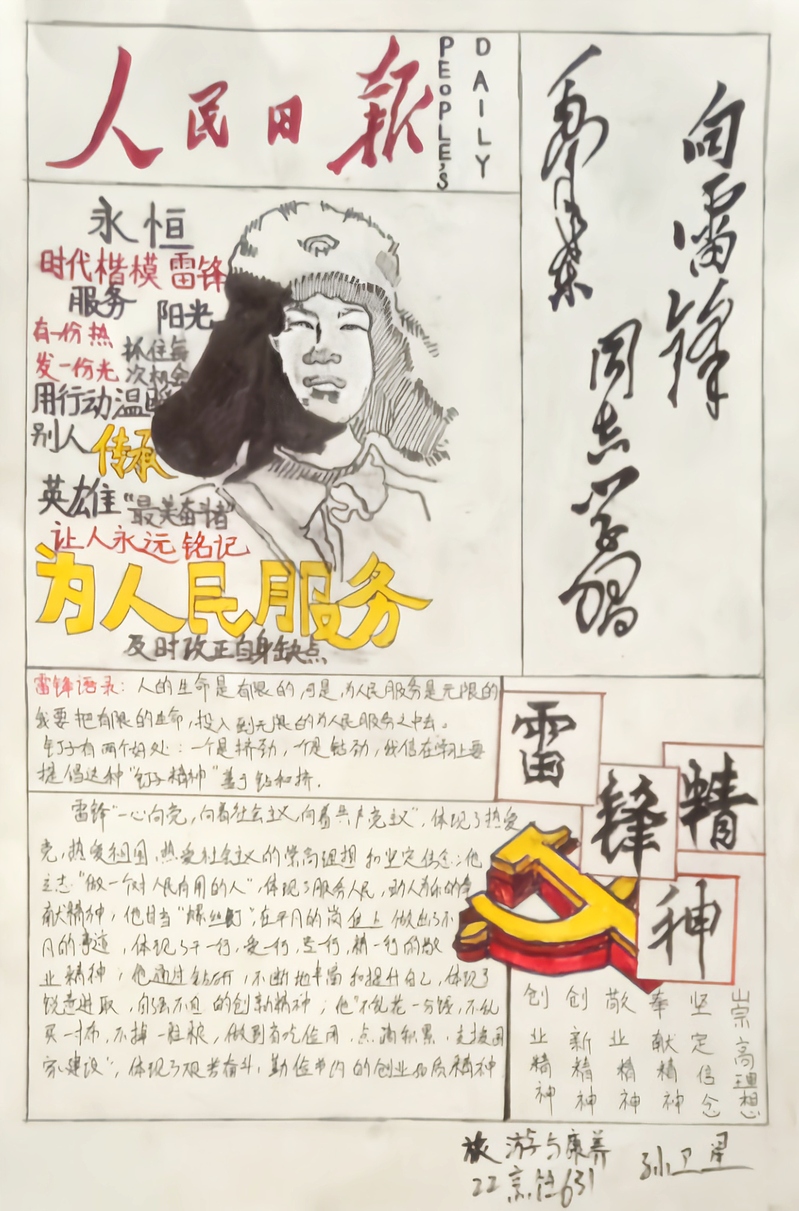 人民日报
PEOPLE'S
DAILY
永恒
时代楷模 雷锋
服务 阳光
有一份热
发一份光
抓住每
次机会
用行动温暖
别人 传承
英雄 "最美奋斗者"
让人永远铭记
为人民服务
及时改正自身缺点
向雷锋
同志学习
毛泽东
雷锋语录：人的生命是有限的，可是，为人民服务是无限的
我要把有限的生命，投入到无限的为人民服务之中去。
钉子有两个好处：一个是挤劲，一个是钻劲，我们在学习上要
提倡这种"钉子精神"善于钻和挤.
雷锋
精
神
雷锋"一心向党，向着社会主义，向着共产党主义"，体现了热爱
党，热爱祖国，热爱社会主义的崇高理想和坚定信念；他
立志"做一个对人民有用的人"，体现了服务人民，助人为乐的奉
献精神；他甘当"螺丝钉"，在平凡的岗位上做出了不
凡的事迹，体现了干一行，爱一行，专一行，精一行的敬
业精神；他通过钻研，不断地丰富和提升自己，体现了
锐意进取，自强不息的创新精神；他"不乱花一分钱，不乱
买一寸布，不掉一粒粮，做到省吃俭用，点滴积累，支援国
家建设"，体现了艰苦奋斗，勤俭节约的创业品质精神
崇高理想
坚定信念
奉献精神
敬业精神
创新精神
创业精神
旅游与康养
孙卫星